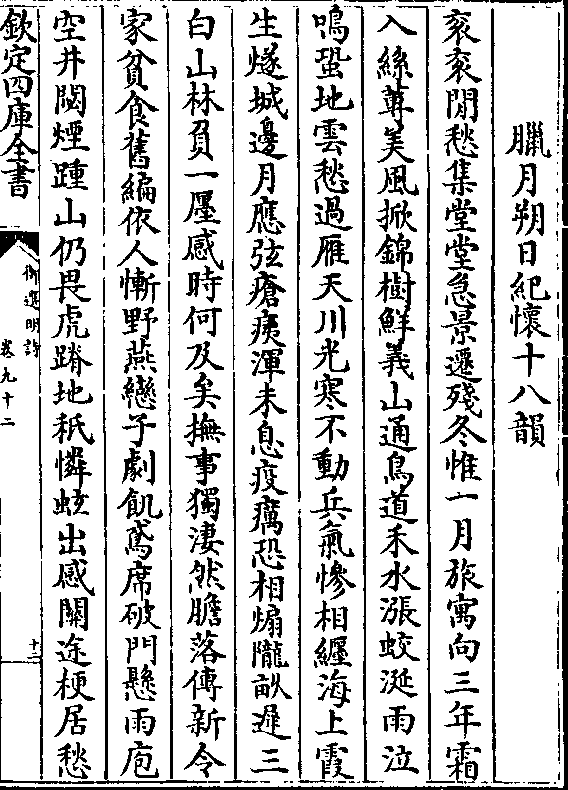 臘月朔日紀懷十八韻
衮衮閒愁集堂堂急景遷殘冬惟一月旅寓向三年霜
入絲蓴美風掀錦樹鮮義山通鳥道禾水漲蛟涎雨泣
鳴蛩地雲愁過雁天川光寒不動兵氣慘相纒海上霞
生燧城邊月應弦瘡痍渾未息疫癘恐相煽隴畝遲三
白山林負一廛感時何及矣撫事獨淒然膽落傳新令
家貧食舊編依人慚野燕戀子劇飢鳶席破門懸雨庖
空井閟煙踵山仍畏虎蹐地秖憐蚿出感關途梗居愁
欽定四庫全書
御選明詩
卷九十二
十二